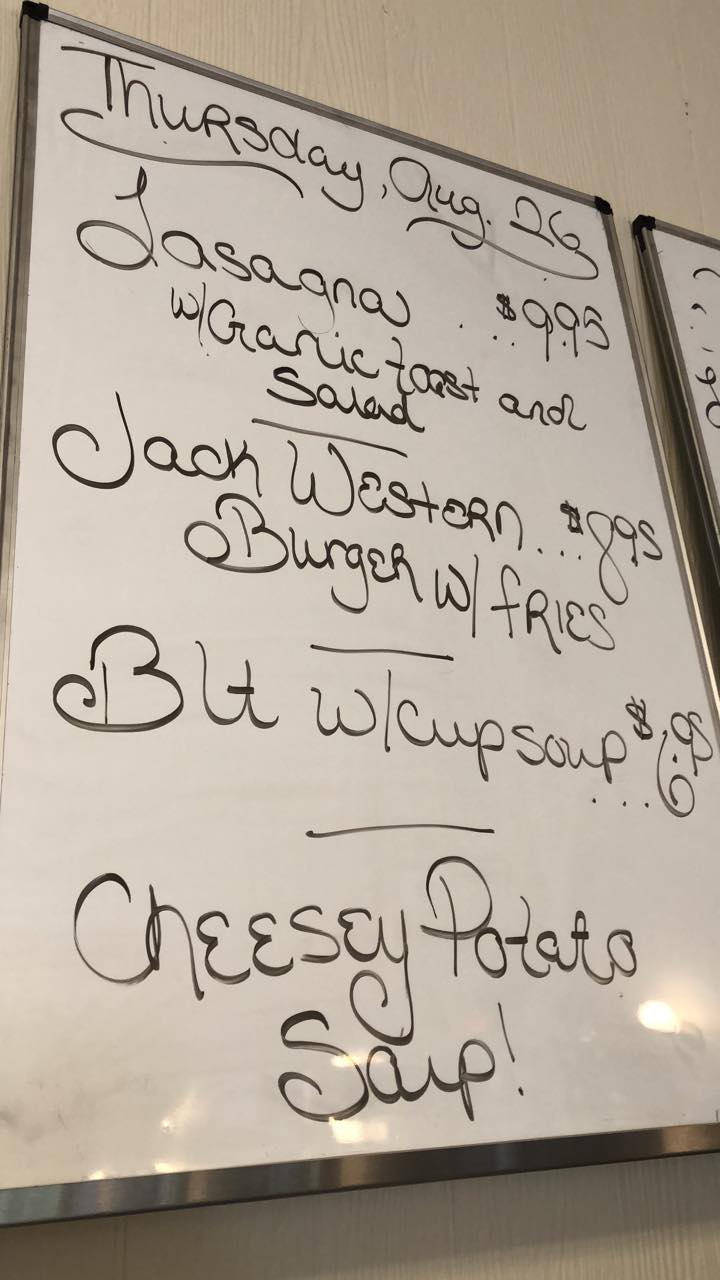 Thursday, Aug. 26
Lasagna ... $9.95
w/Garlic toast and
Salad
Jack Western ... $8.95
Burger w/ fRIES
Blt w/cup soup ... $6.95
Cheesey Potato
Soup!